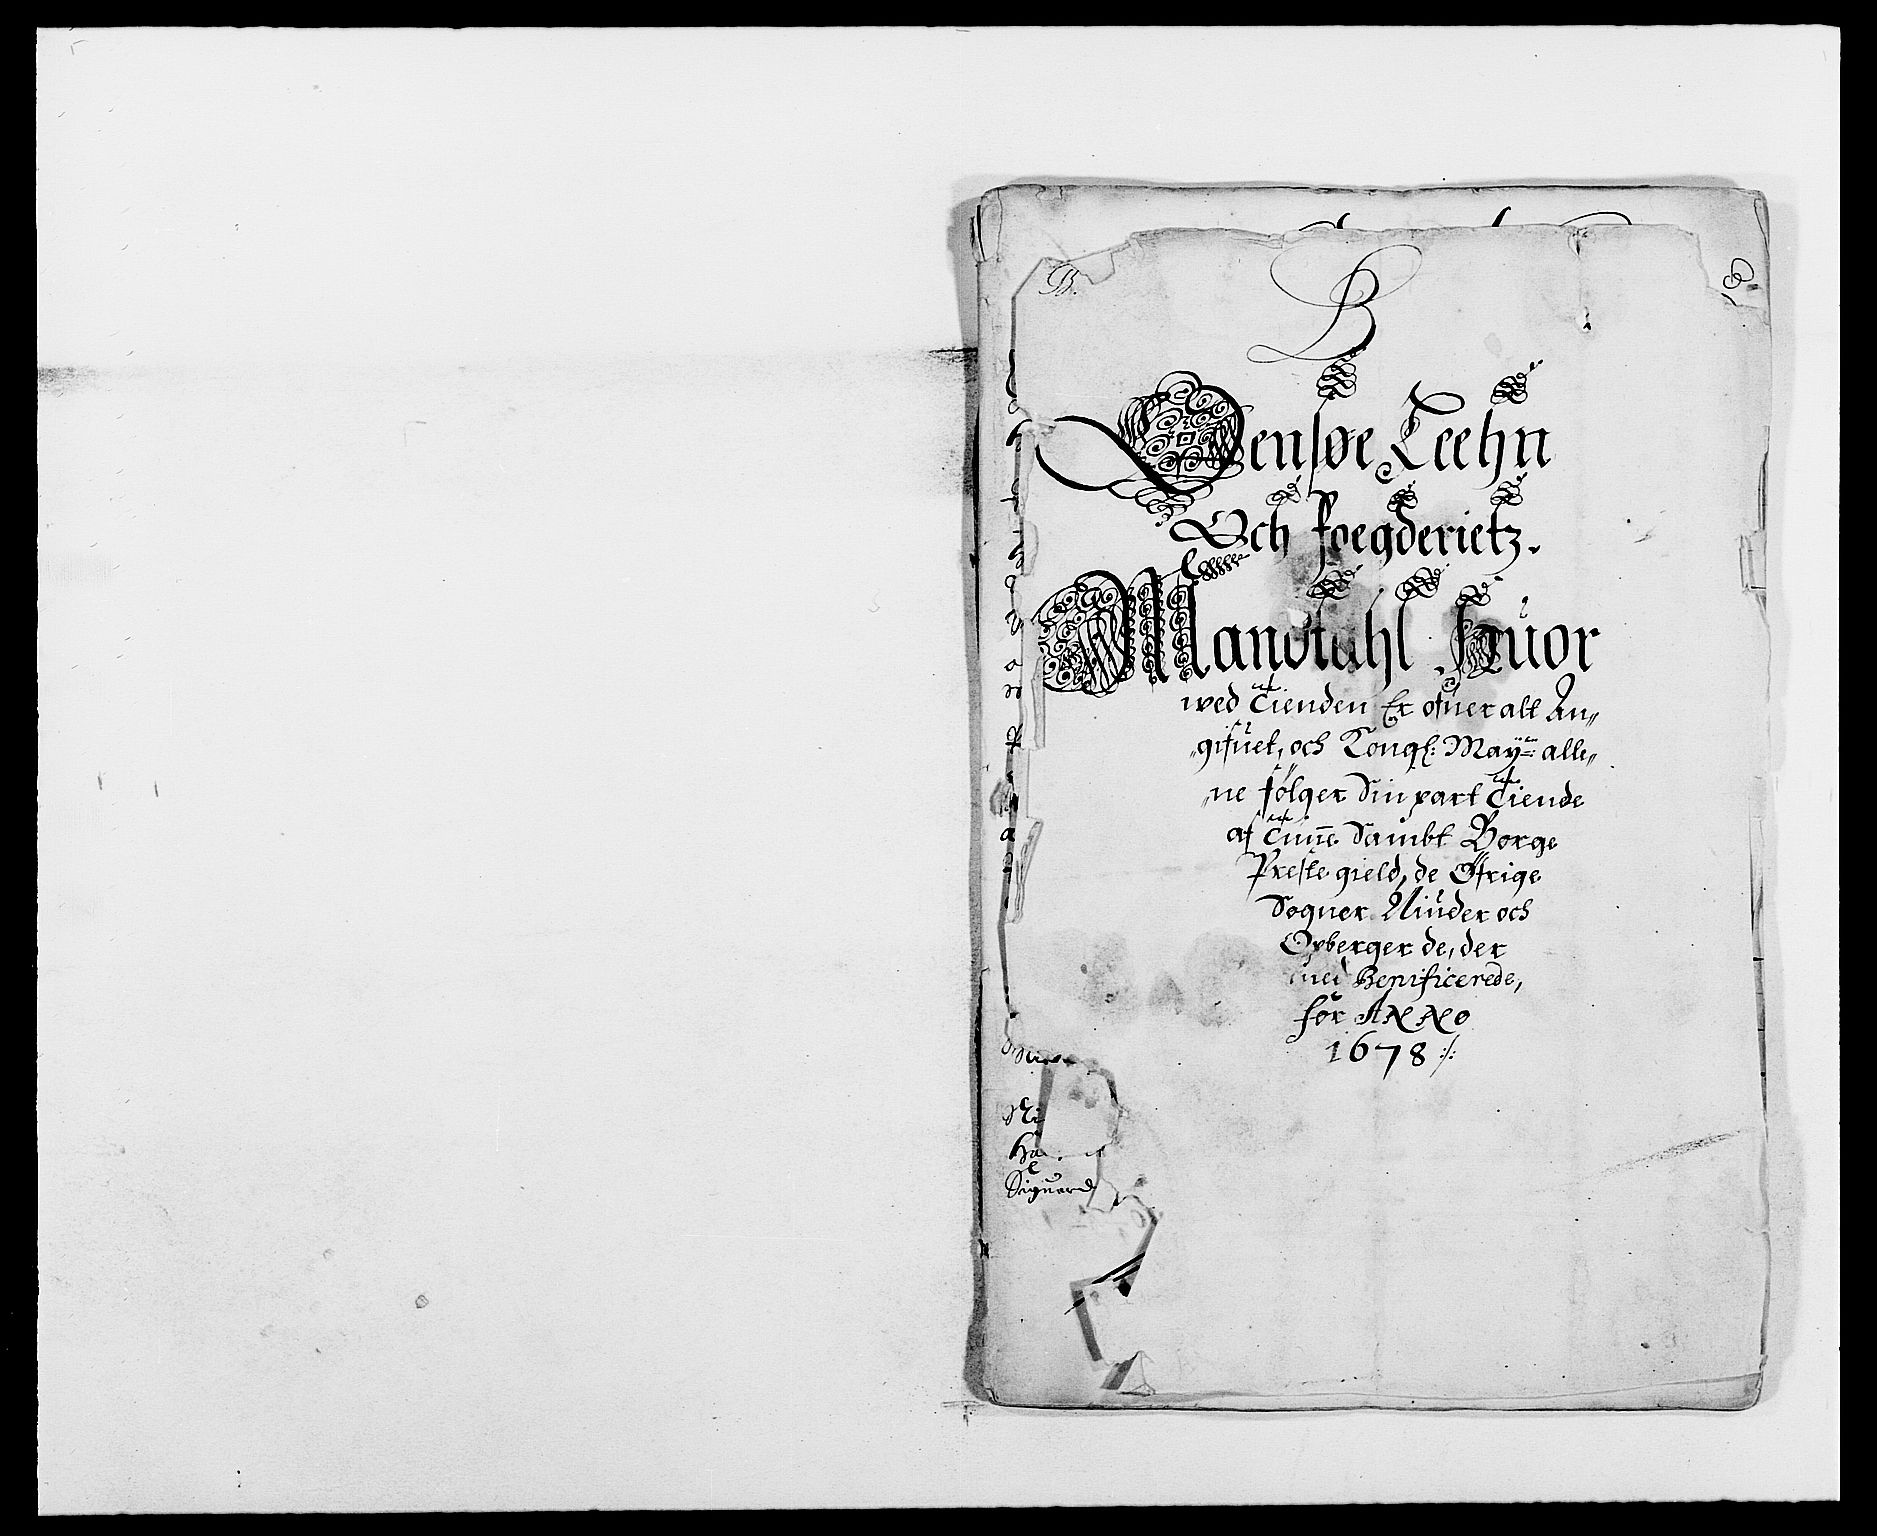 B.
B
Jensøe Leehn
Och foegderietz.
Mandtahl Huor
wed Tienden Er ofuer alt An„
„gifuet, och Kongl: May: alle„
„ne følger Sin part Tiende
af Tunne Sambt Borge
Preste gield, de Øfrige
Sogner Niuder och
Opberger de, der
med Benificerede,
for ANNO
1678 ./.
Siguerd